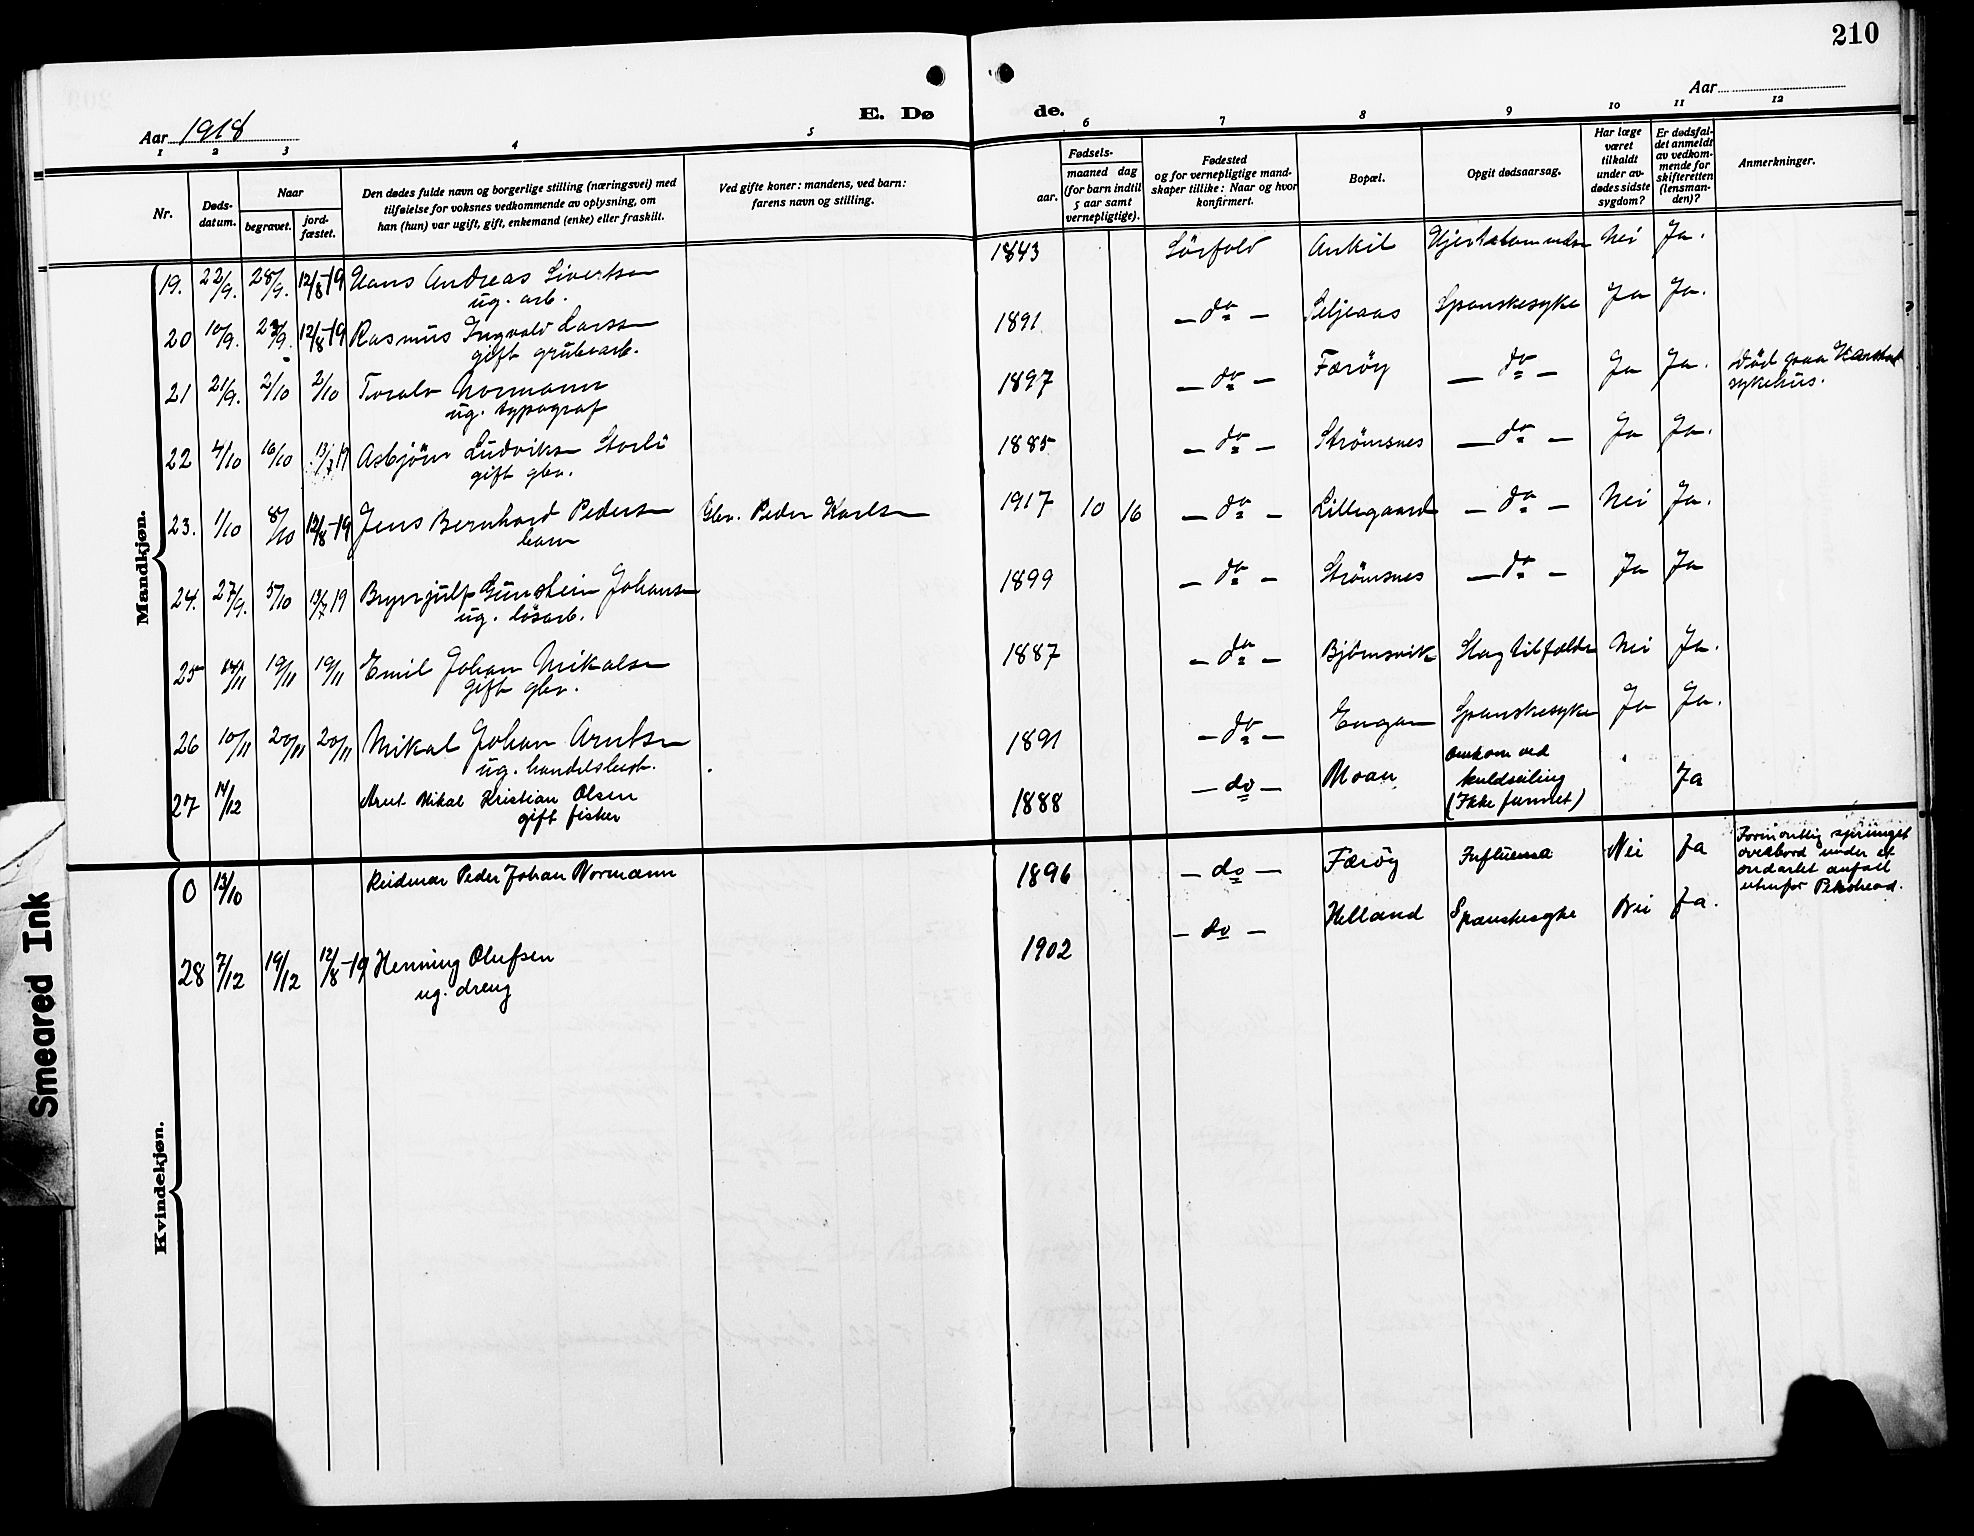 210
E. Døde.
Aar 1918
Aar
1 2 3 4 5 6 7 8 9 10 11 12
Nr.
Døds-
datum.
Naar
begravet.
jord-
fæstet.
Den dødes fulde navn og borgerlige stilling (næringsvei) med
tilføielse for voksnes vedkommende av oplysning, om
han (hun) var ugift, gift, enkemand (enke) eller fraskilt.
Ved gifte koner: mandens, ved barn:
farens navn og stilling.
Fødsels-
aar.
maaned dag
(for barn indtil
5 aar samt
vernepligtige).
Fødested
og for vernepligtige mand-
skaper tillike: Naar og hvor
konfirmert.
Bopæl.
Opgit dødsaarsag.
Har læge
været
tilkaldt
under av-
dødes sidste
sygdom?
Er dødsfal-
det anmeldt
av vedkom-
mende for
skifteretten
(lensman-
den)?
Anmerkninger.
Mandkjøn.
19. 22/9. 28/9. 12/8-19 Hans Andreas Sivertsen 1843 Sörfold Nei Ja.
ug. arb.
20 10/9. 12/8-19 Rasmus Ingvald Larssen 1891 - do - Seljeaas Spanskesyke Ja Ja.
gift grubearb.
21 21/9. 2/10 2/10 Toralv Normann 1897 - do - Færöy - do - Ja Ja. Död paa Harstad
ug. typograf sykehus.
22 4/10 16/10 13/7 19 Asbjörn Ludviksen Storli 1885 - do - Strömsnes - do - Ja Ja.
gift gbr.
23. 1/10 8/10 12/8-19 Jens Bernhard Pedersen Gbr. Peder Karlsen 1917 10 16 - do - Lillegaard - do - Nei Ja.
barn
24. 27/9. 5/10 13/7 19 Brynjulf Gunstein Johansen 1899 - do - Strömsnes - do - Ja Ja
ug. lösarb.
25 19/11 19/11 Emil Johan Mikalsen 1887 - do - Björnsvik Slagtilfælde Nei Ja.
Gift gbr.
26 10/11 20/11 20/11 Mikal Johan Arntsen 1891 - do - Engan Spanskesyke Ja Ja.
ug. handelsbest.
27 14/12 Arnt Mikal Kristian Olsen 1888 - do - Moan Omkom ved
kuldseiling
(Ikke funnet) Ja
gift fisker
Kvindekjøn.
0 13/10 Reidmar Peder Johan Normann 1896 - do - Færöy Influensa Nei Ja Formentlig sprunget
overbord under et
ondartet anfall
utenfor
28 7/12 19/12 12/8-19 Henning Olufsen 1902 - do - Helland Spanskesyke Nei Ja.
ug. dreng
Smeared Ink